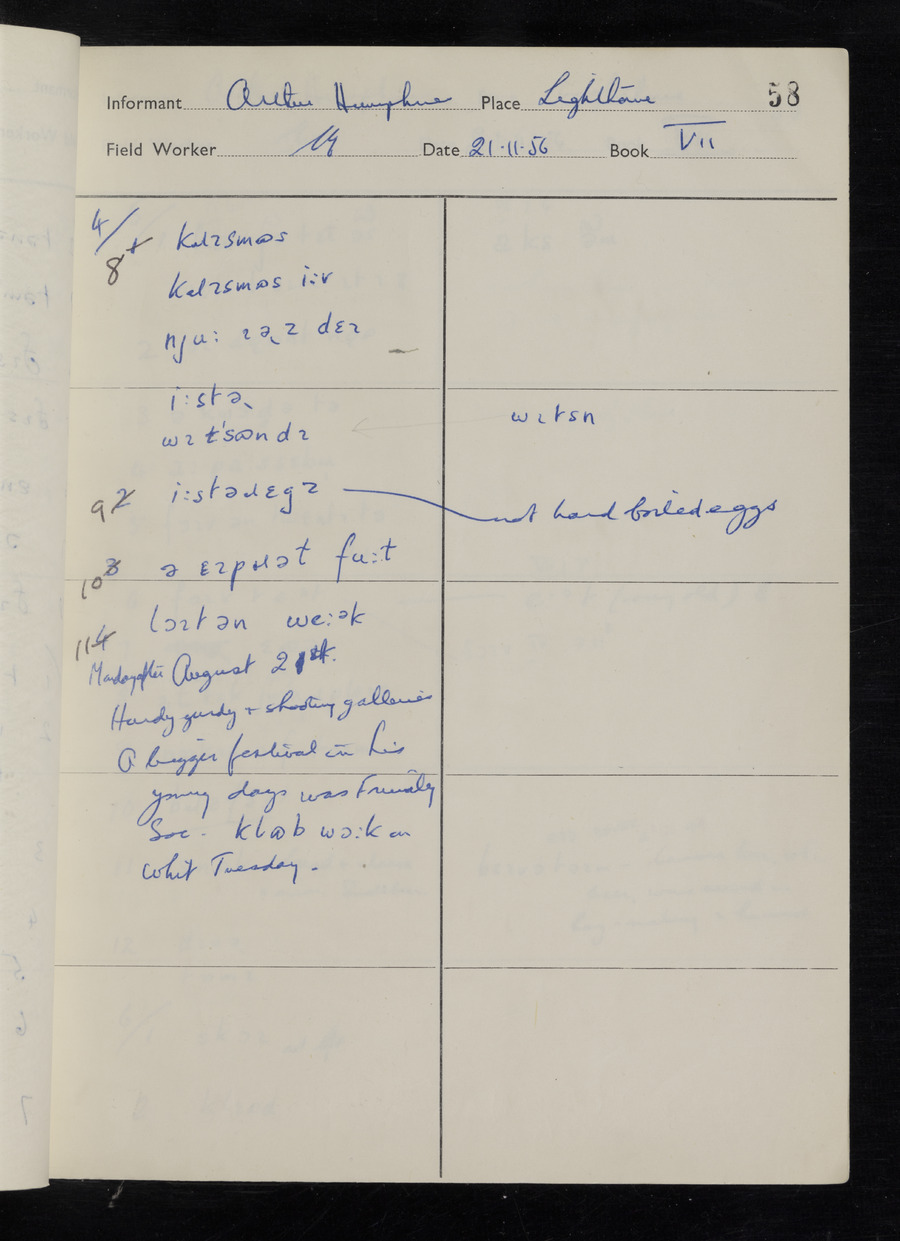 Informant Arthur Humphries Place Lighthorne 58
Field Worker Date 21·11·56 Book VII
4/
8 kɹɪsməs
kɹɪsməs iːv
njuː ɪəɪz dɛɪ
iːstə
wɪt'sʊndɪ
wɪtsn
9 iːstəɹɛgz
not hard boiled eggs
10 ə ɛɪpɹət fuːt
11 lɔɪtən weːək
Monday after August 21st.
Hurdy gurdy + shooting galleries
A bigger festival in his
young days was Friendly
Soc. klʊb wɔːk on
Whit Tuesday.